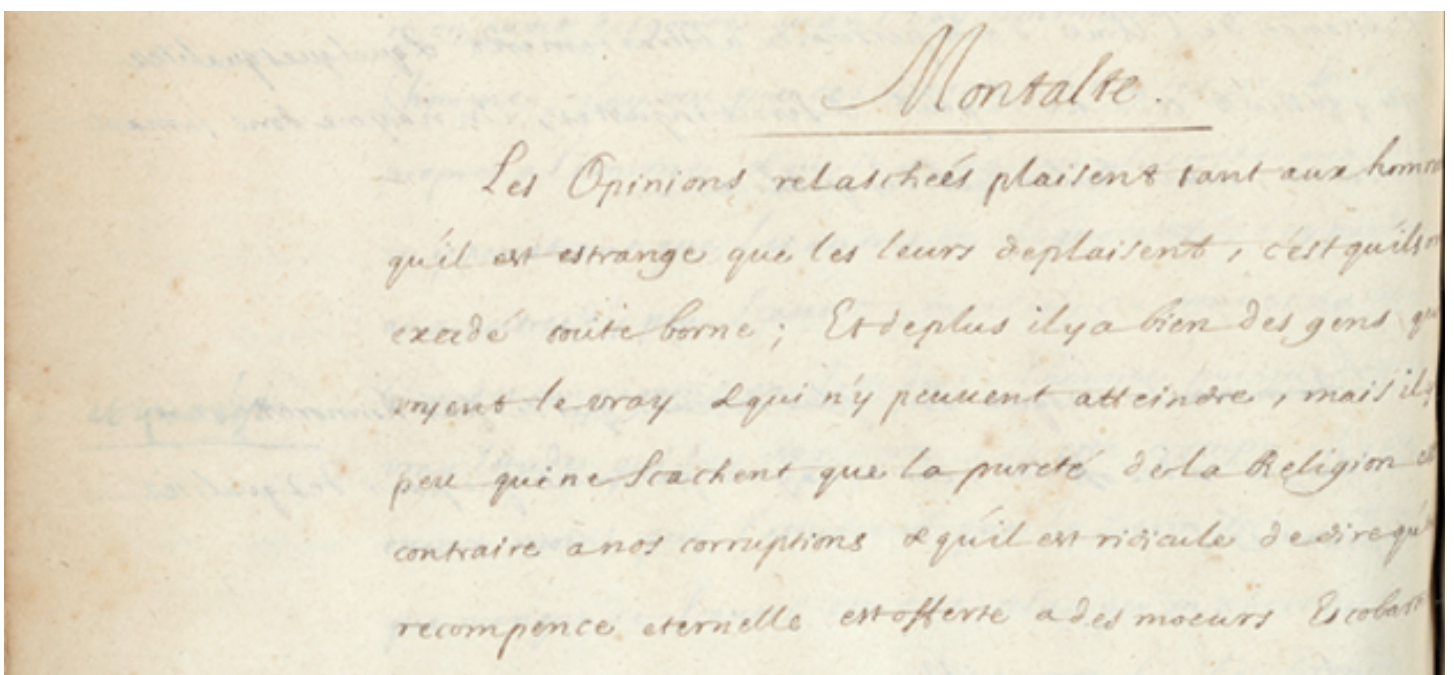 Montalte.
Les Opinions relaschées plaisent tant aux hom
qu'il est estrange que les leurs deplaisent, c'est qu'ils on
excedé toute borne; Et deplus il y a bien des gens qu
voyent le vray & qui n'y peuuent atteindre, mais il y
peu qui ne scachent que la pureté de la Religion e
contraire a nos corruptions & qu'il est ridicule de dire qu'
recompence eternelle est offerte a des moeurs Escobart